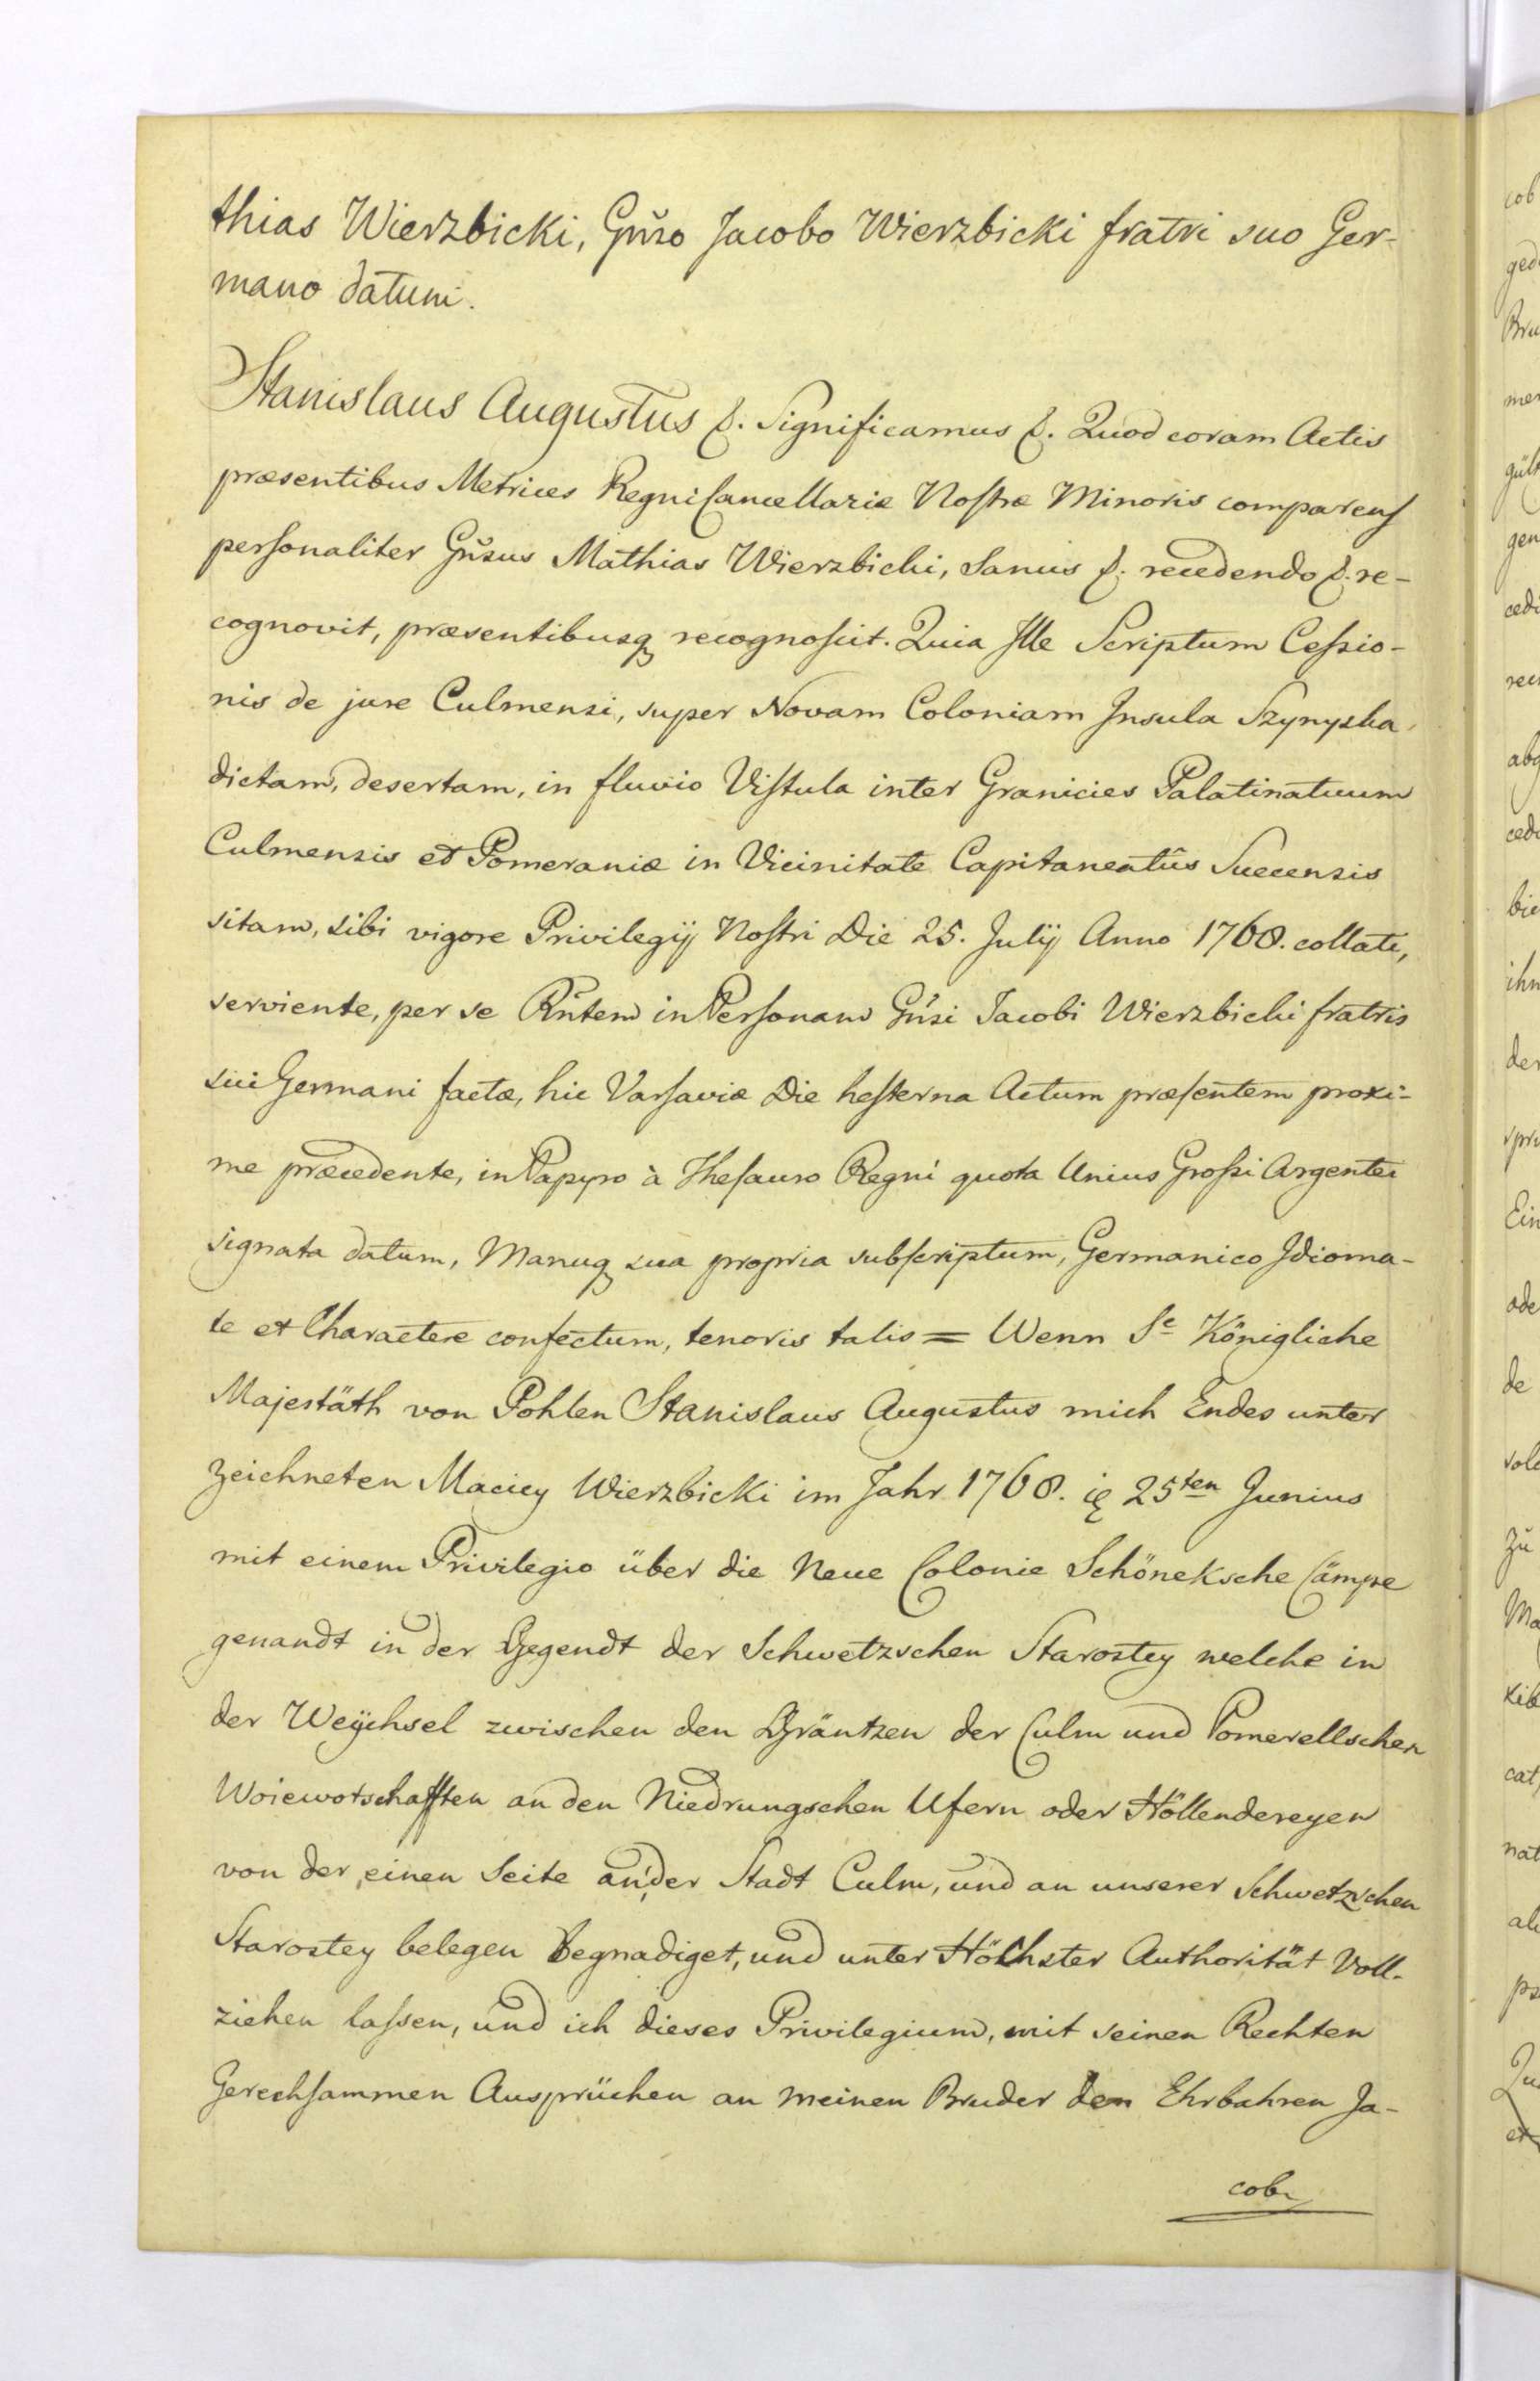 thias Wierzbicki, Gnŭso Jacobo Wierzbicki fratri suo Ger-
mano datum.
Stanislaus Augustus &. Significamus &. Quod coram Actis
præsentibus Metrices Regni Cancellariæ Nostræ Minoris comparens
personaliter Gnŭsus Mathias Wierzbicki, Sanus &. recedendo &. re-
cognovit, præsentibusq recognoscit. Quia Ille Scriptum Cessio-
nis de jure Culmensi, super Novam Coloniam Insula Szynyska
dictam, desertam, in fluvio Vistula inter Granicies Palatinatuum
Culmensis et Pomeraniæ in Vicinitate Capitaneatûs Suecensis
sitam, sibi vigore Privilegÿ Nostri Die 25. Julÿ Anno 1768. collati,
serviente, per se Rñtem in Personam Gnŭsi Jacobi Wierzbicki fratris
sui Germani factæ, hic Varsaviæ Die hesterna Actum præsentem proxi-
me præcedente, in Papyro à Thesauro Regni quota Unius Grossi Argentei
signata datum, Manuq sua propria subscriptum, Germanico Idioma-
te et Charactere confectum, tenoris talis = Wenn Se Königliche
Majestäth von Pohlen Stanislaus Augustus mich Endes unter
zeichneten Maciey Wierzbicki im Jahr 1768. 25ten Junius
mit einem Privilegio über die Neue Colonie Schöneksche Cämpe
genandt in der Gegendt der Schwetzschen Starostey welche in
der Weÿchsel zwischen den Gräntzen der Culm und Pomerellschen
Woiewotschafften an den Niedrungschen Ufern oder Höllendereyen
von der einen Seite an der Stadt Culm, und an unserer Schwetzschen
Starostey belegen begnadiget, und unter Höchster Authorität Voll-
ziehen lassen, und ich dieses Privilegium, mit seinen Rechten
Gerechsammen Ausprüchen an meinen Bruder den Ehrbahren Ja-
cob